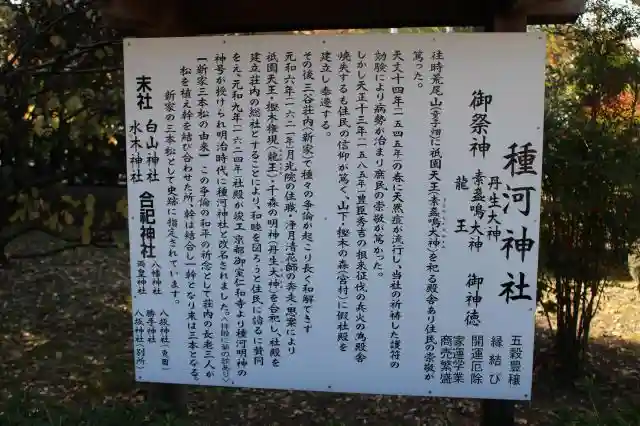 種河神社
御祭神
丹生大神
素盞鳴大神
龍王
御神徳
五穀豊穣
縁結び
開運厄除
家運学業
商売繁盛
往時荒尾山(高野畑)に祇園天王(素盞鳴大神)を祀る殿舎あり住民の崇敬が
篤った。
天文十四年(一五四五年)の春に天然痘が流行し、当社の祈祷した護符の
効験により病勢が治まり庶民の崇敬が篤かった。
しかし天正十三年(一五八五年)豊臣秀吉の根来征伐の兵火の為殿舎
焼失するも住民の信仰が篤く、山下・樫木の森(宮村)に仮社殿を
建立し奉遷する。
その後三谷荘内(新家)で種々の争論が起こり長く和解できず
元和六年(一六二一年)月光院の住職・浄月清花師の奔走・思案により
祇園天王・樫木権現(龍王)・千森の明神(丹生大神)を合祀し、社殿を
建立し荘内の総社とすることにより、和睦を図ろうと住民に諮うに賛同
をえ、元和九年(一六二四年)社殿が竣工、京都御室仁和寺より種河明神の
神号が授けられ明治時代に種河神社と改名されました。
【新家三本松の由来】この争論の和平の祈念として荘内の古老三人が
松を植え幹を結び合わせた所、幹は結合し一幹となり末は三本となる。
新家の三本松として史跡に指定されています。
末社
白山神社
水木神社
合祀神社
八幡神社
両皇神社
八坂神社
勝手神社
八坂神社(別所)